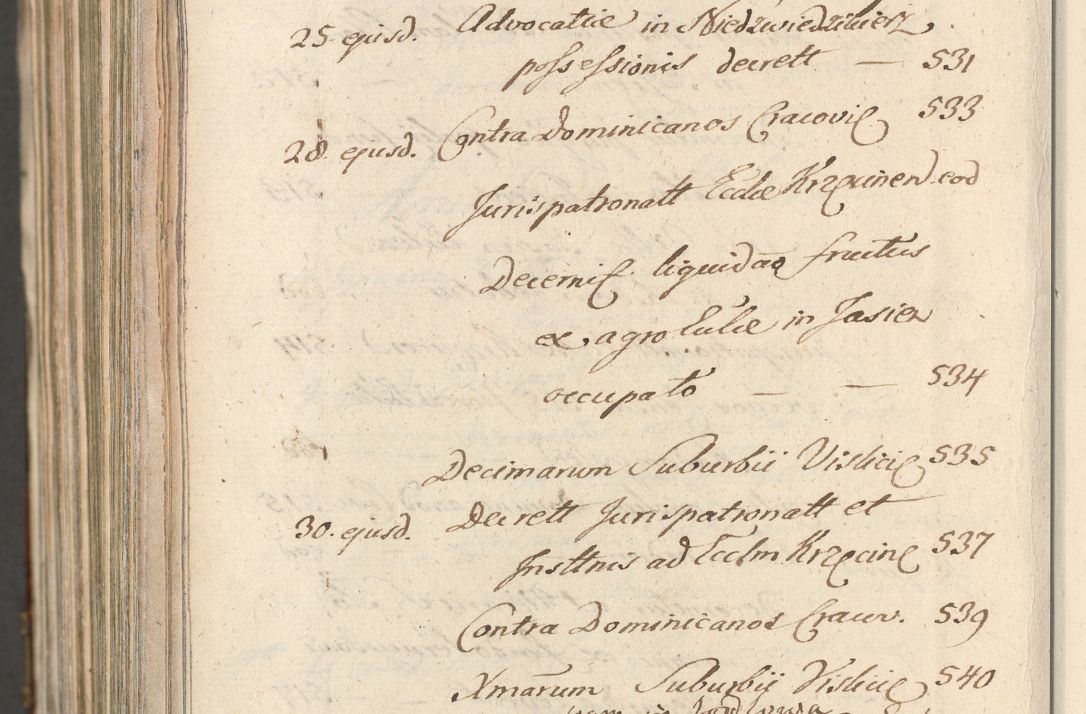 25 ejusd. Advocatiæ in Niedzwiedziniec
possessionis decrett — 531
28 ejusd. Contra Dominicanos Cracoviē 533
Jurispatronatt Ecclæ Krzęcinen eod
Decernit liquidāo fructus
ex agro Eccliæ in Jasien
occupato — — 534
Decimarum Suburbii Visliciē 535
30. ejusd. Decrett Jurispatronatt et
Insttnis ad Ecclm Krzęcinē 537
Contra Dominicanos Cracov. 539
Xmarum Suburbij Visliciē 540